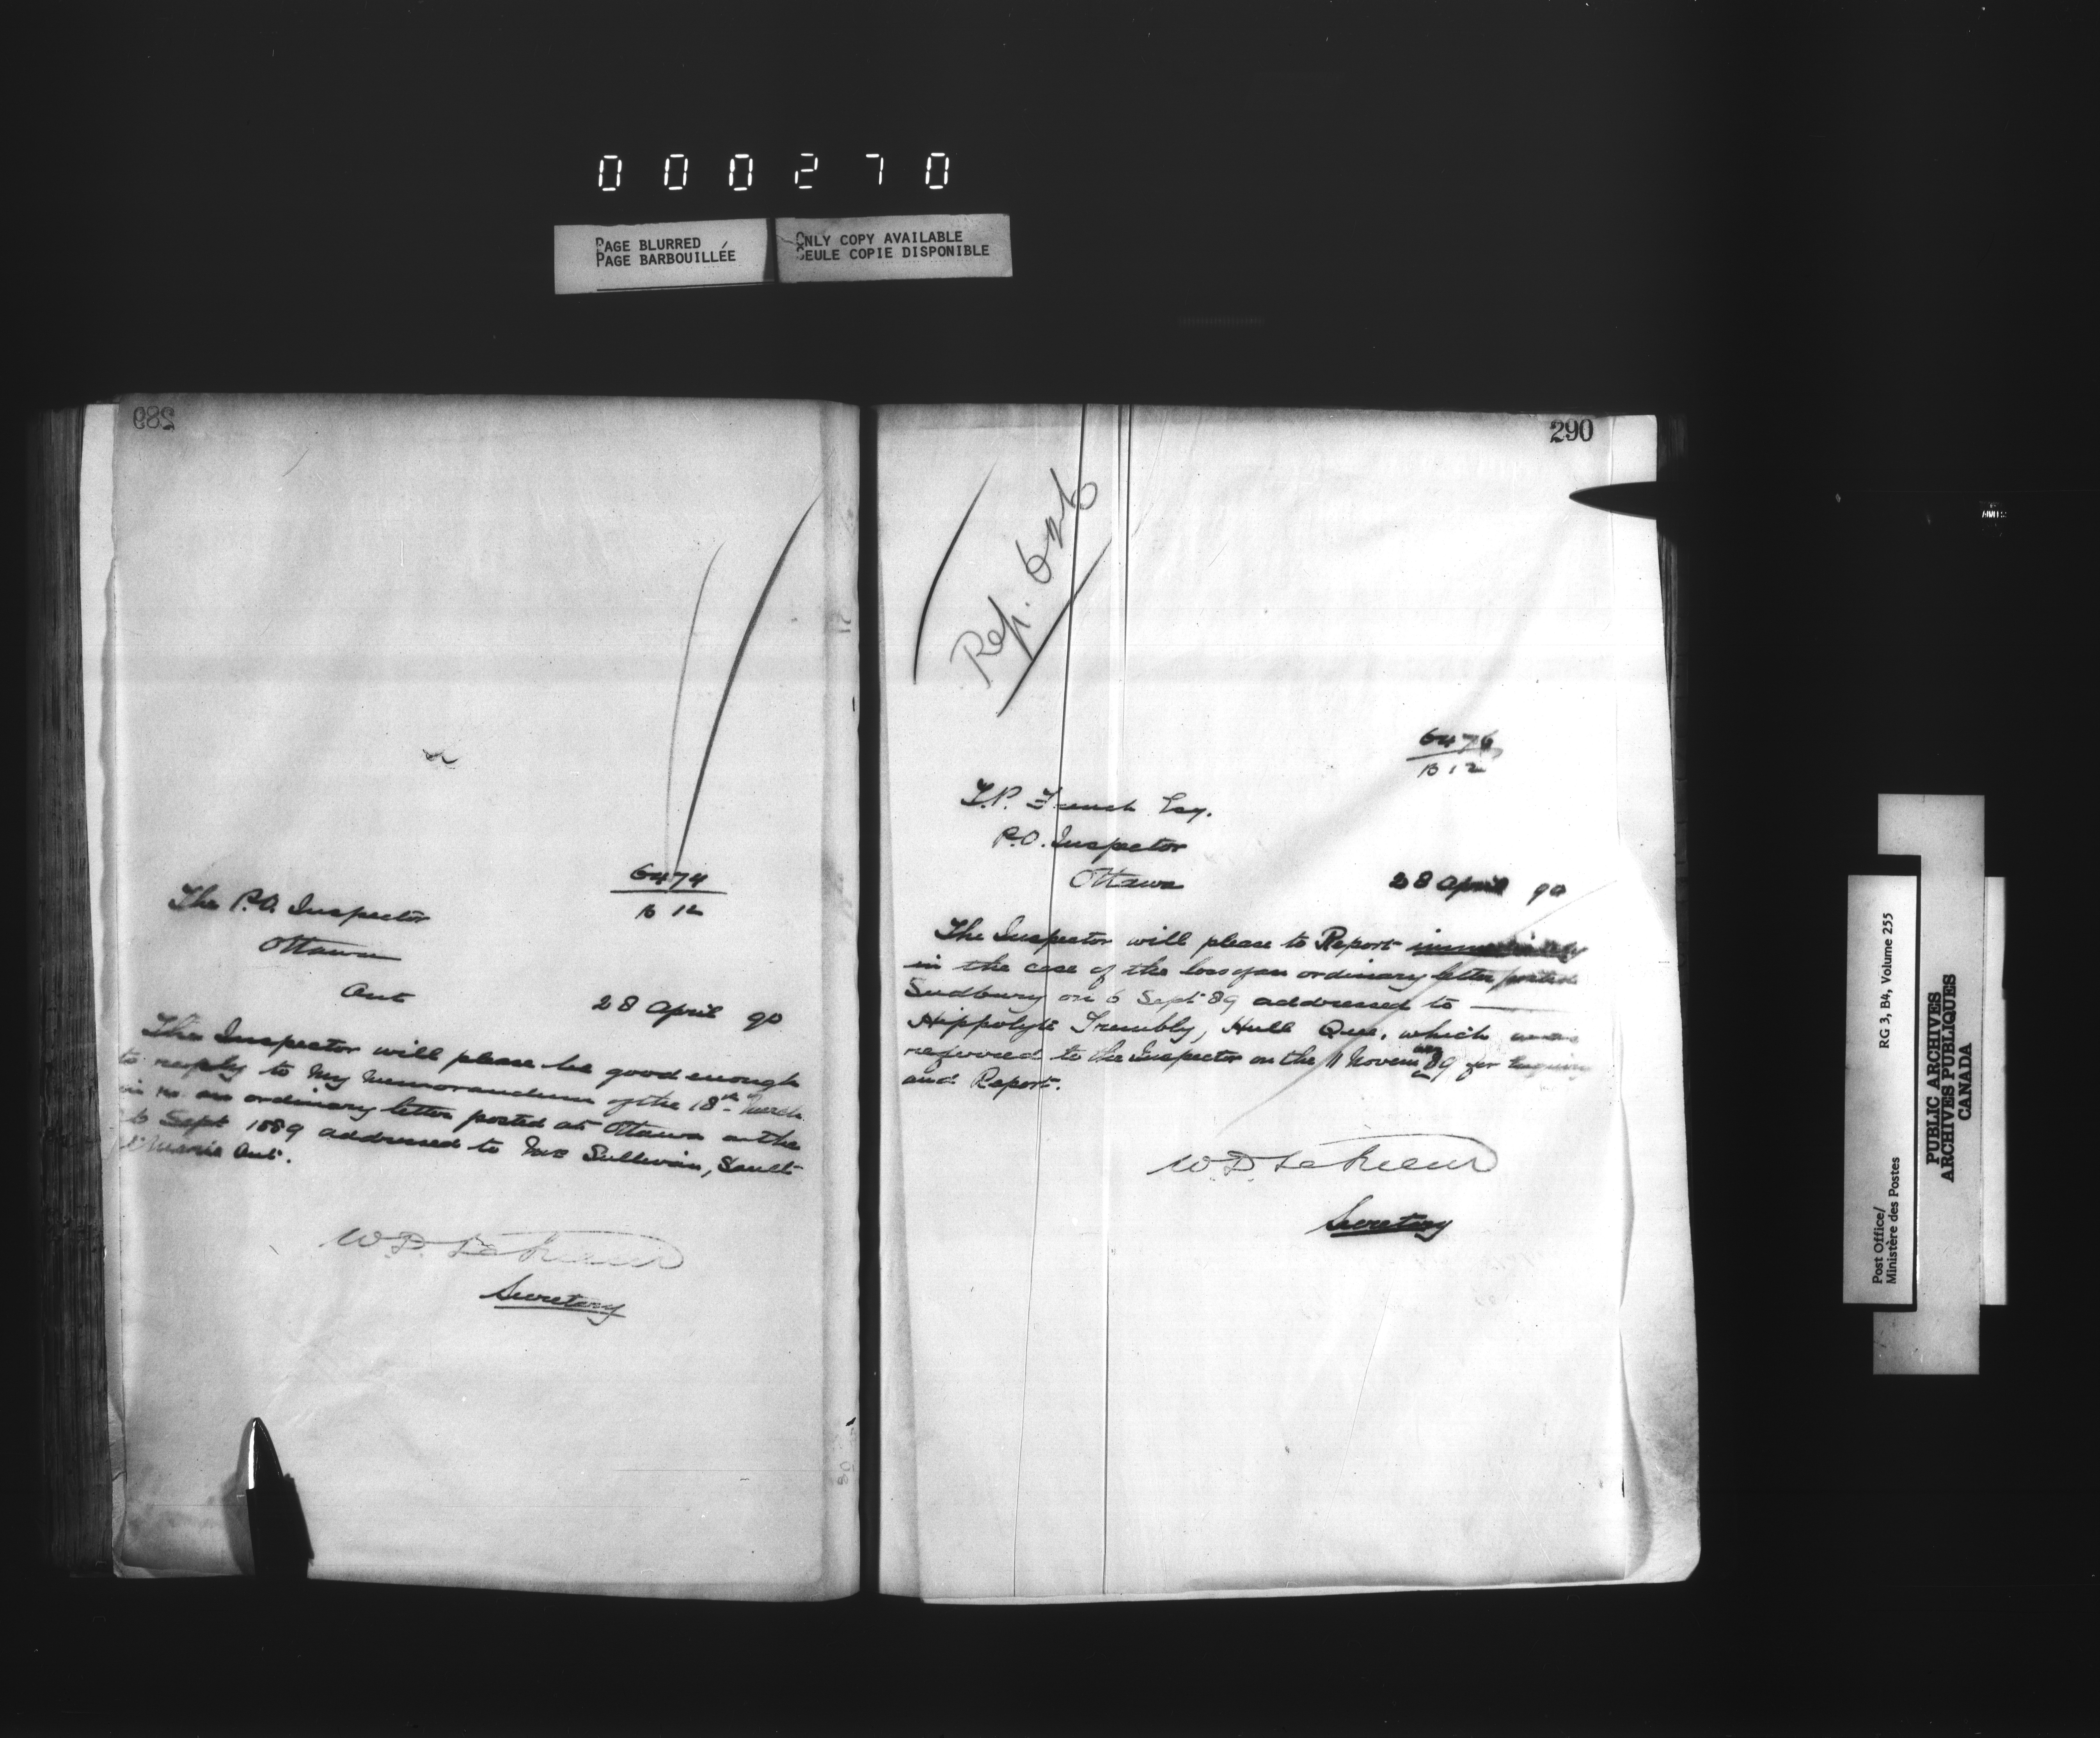 000270
PAGE BLURRED
PAGE BARBOUILLÉE
ONLY COPY AVAILABLE
SEULE COPIE DISPONIBLE
289
6474
B 12
The P.O. Inspector
Ottawa
Ont
28 April 90
The Inspector will please be good enough
to reply to my memorandum of the 18th March
in re an ordinary letter posted at Ottawa on the
6 Sept 1889 addressed to Mrs Sullivan, Sault
Marie Ont.
W.D. LeSueur
Secretary
290
Rep.
6476
B 12
T.P. French Esq.
P.O. Inspector
Ottawa
28 April 90
The Inspector will please to Report immediately
in the case of the loss of an ordinary letter posted
Sudbury on 6 Sept 89 addressed to
Hippolyte Trembly, Hull Que. which was
referred to the Inspector on the 11 Novem 89 for Enquiry
and Report.
W.D. LeSueur
Secretary
Post Office/
Ministère des Postes
RG 3, B4, Volume 255
PUBLIC ARCHIVES
ARCHIVES PUBLIQUES
CANADA